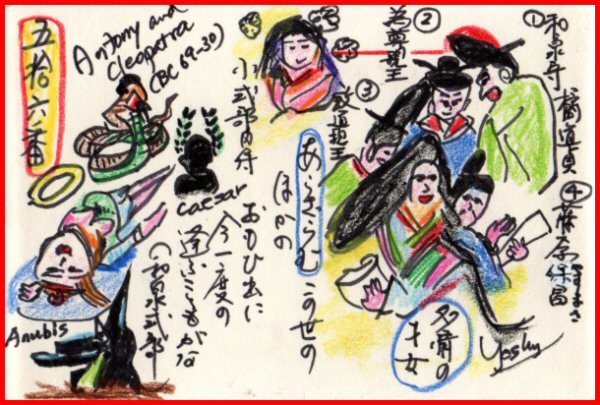 ① 和泉守 橘道貞
② 為尊親王
③ 敦道親王
④ 藤原保昌
やすまさ
小式部内侍
多情の
才女
あらざらむ この世の
ほかの
おもひ出に
今一度の
逢ふこともがな
(和泉式部)
五拾六番
Antony and
Cleopatra
(BC 69-30)
Caesar
Anubis
Yoshy